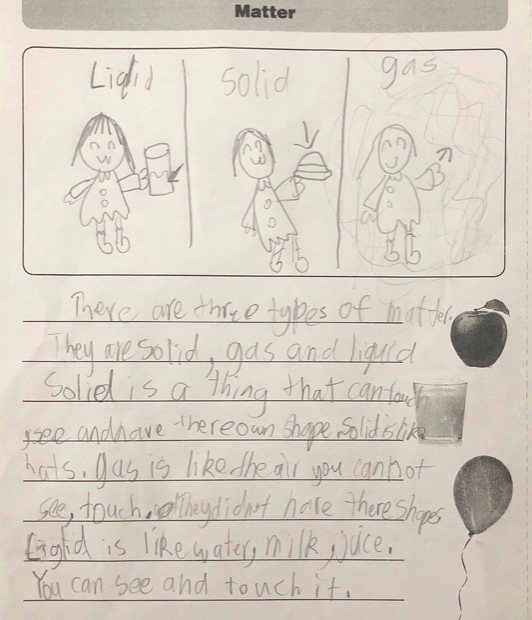 Matter
Liqid
Solid
gas
There are three types of matter.
They are solid, gas and liquid
Solid is a thing that can touch
,see and have there own shape. Solid is like
hats. gas is like the air you cannot
see, touch. They did not have there shapes
Liqid is like water, milk, juice.
You can see and touch it.